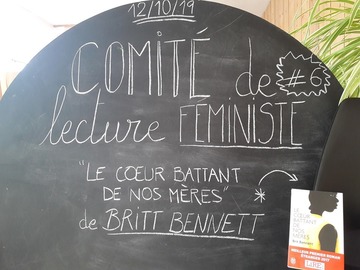 12/10/19
COMITÉ de
#6
lecture FÉMINISTE
"LE COEUR BATTANT
DE NOS MÈRES"
*
de BRITT BENNETT
LE
COEUR
BATTANT
DE NOS
MÈRES
Brit Bennett
MEILLEUR PREMIER ROMAN
ÉTRANGER 2017
LIRE